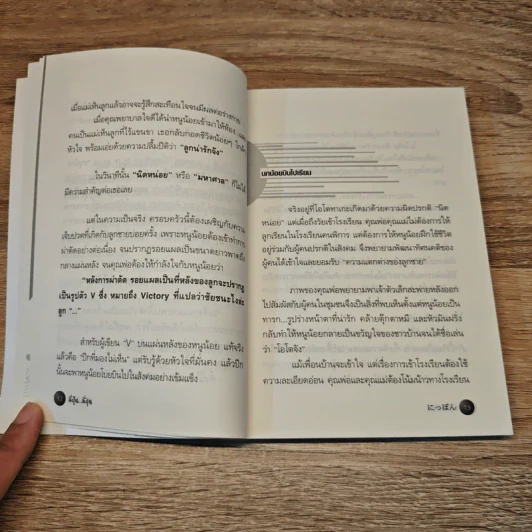 เมื่อแม่เห็นลูกแล้วอาจจะรู้สึกสะเทือนใจจนมีผลต่อร่างกาย
เมื่อคุณพยาบาลใจดีได้นำหนูน้อยเข้ามาให้ท้อง
คนเป็นแม่เห็นลูกที่ไร้แขนขา เธอกลับกอดชีวิตน้อยๆ
หัวใจ พร้อมเอ่ยด้วยความปลื้มปีติว่า "ลูกน่ารักจัง"
...ในวินาทีนั้น "นิดหน่อย" หรือ "มหาศาล" ก็ไม่ได้
มีความสำคัญต่อเธอเลย
แต่ในความเป็นจริง ครอบครัวนี้ต้องเผชิญกับความ
เจ็บปวดที่เกิดกับลูกชายบ่อยครั้ง เพราะหนูน้อยต้องเข้าทำการ
ผ่าตัดอย่างต่อเนื่อง จนปรากฏรอยแผลเป็นขนาดยาวพาดถึง
กลางแผ่นหลัง จนคุณพ่อต้องให้กำลังใจกับหนูน้อยว่า
"หลังการผ่าตัด รอยแผลเป็นที่หลังของลูกจะปรากฏ
เป็นรูปตัว V ซึ่ง หมายถึง Victory ที่แปลว่าชัยชนะไงล่ะ
ลูก "..."
สำหรับผู้เขียน "V" บนแผ่นหลังของหนูน้อย แท้จริง
แล้วคือ "ปีกที่มองไม่เห็น" แต่รับรู้ด้วยหัวใจที่มั่นคง แล้วปีก
นั้นจะพาหนูน้อยโบยบินไปในสังคมอย่างเข้มแข็ง
ญี่ปุ่น..ญี่ปุ่น
นกน้อยบินไปเรียน
จริงอยู่ที่โอโตทาเกะเกิดมาด้วยความผิดปรกติ "นิด
หน่อย" แต่เมื่อถึงวัยเข้าโรงเรียน คุณพ่อคุณแม่ไม่ต้องการให้
ลูกเรียนในโรงเรียนคนพิการ แต่ต้องการให้หนูน้อยฝึกใช้ชีวิต
อยู่ร่วมกับผู้คนปรกติในสังคม จึงพยายามพัฒนาทัศนคติของ
ผู้คนให้เข้าใจและยอมรับ "ความแตกต่างของลูกชาย"
ภาพของคุณพ่อพยายามพาเจ้าตัวเล็กสะพายหลังออก
ไปสัมผัสกับผู้คนในชุมชนจึงเป็นสิ่งที่พบเห็นตั้งแต่หนูน้อยเป็น
ทารก...รูปร่างหน้าตาที่น่ารัก คล้ายตุ๊กตาหมี และหัวมันฝรั่ง
กลับทำให้หนูน้อยกลายเป็นขวัญใจของชาวบ้านจนได้ชื่อเล่น
ว่า "โอโตจัง"
แม้เพื่อนบ้านจะเข้าใจ แต่เรื่องการเข้าโรงเรียนต้องใช้
ความละเอียดอ่อน คุณพ่อและคุณแม่ต้องโน้มน้าวทางโรงเรียน
にっぽん